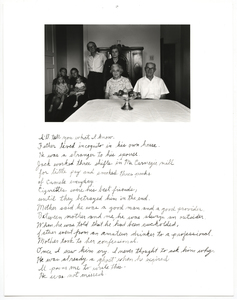 I'll tell you what I know.
Father lived incognito in his own home.
He was a stranger to his spouse.
Jack worked three shifts in the Carnegie mill
for little pay and smoked three packs
of Camels everyday.
Cigarettes were his best friends;
until they betrayed him in the end.
Mother said he was a good man and a good provider.
Between mother and me he was always an outsider.
When he was told that he had been overlooked,
Father went from an amateur drinker to a professional.
Mother took to her confessional.
Once I saw him cry. I never thought to ask him why.
He was already a ghost when he
It pains me to write this:
He was not missed.